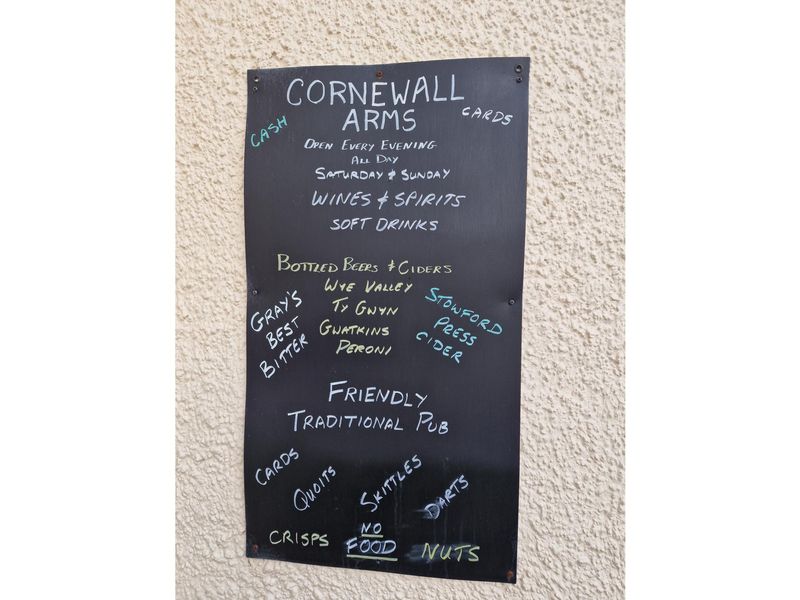 CORNEWALL
ARMS
CASH
CARDS
OPEN EVERY EVENING
ALL DAY
SATURDAY & SUNDAY
WINES & SPIRITS
SOFT DRINKS
BOTTLED BEERS & CIDERS
WYE VALLEY
TY GWYN
GWATKINS
PERONI
GRAY'S
BEST
BITTER
STOWFORD
PRESS
CIDER
FRIENDLY
TRADITIONAL PUB
CARDS
QUOITS
SKITTLES
DARTS
CRISPS
NO
FOOD
NUTS